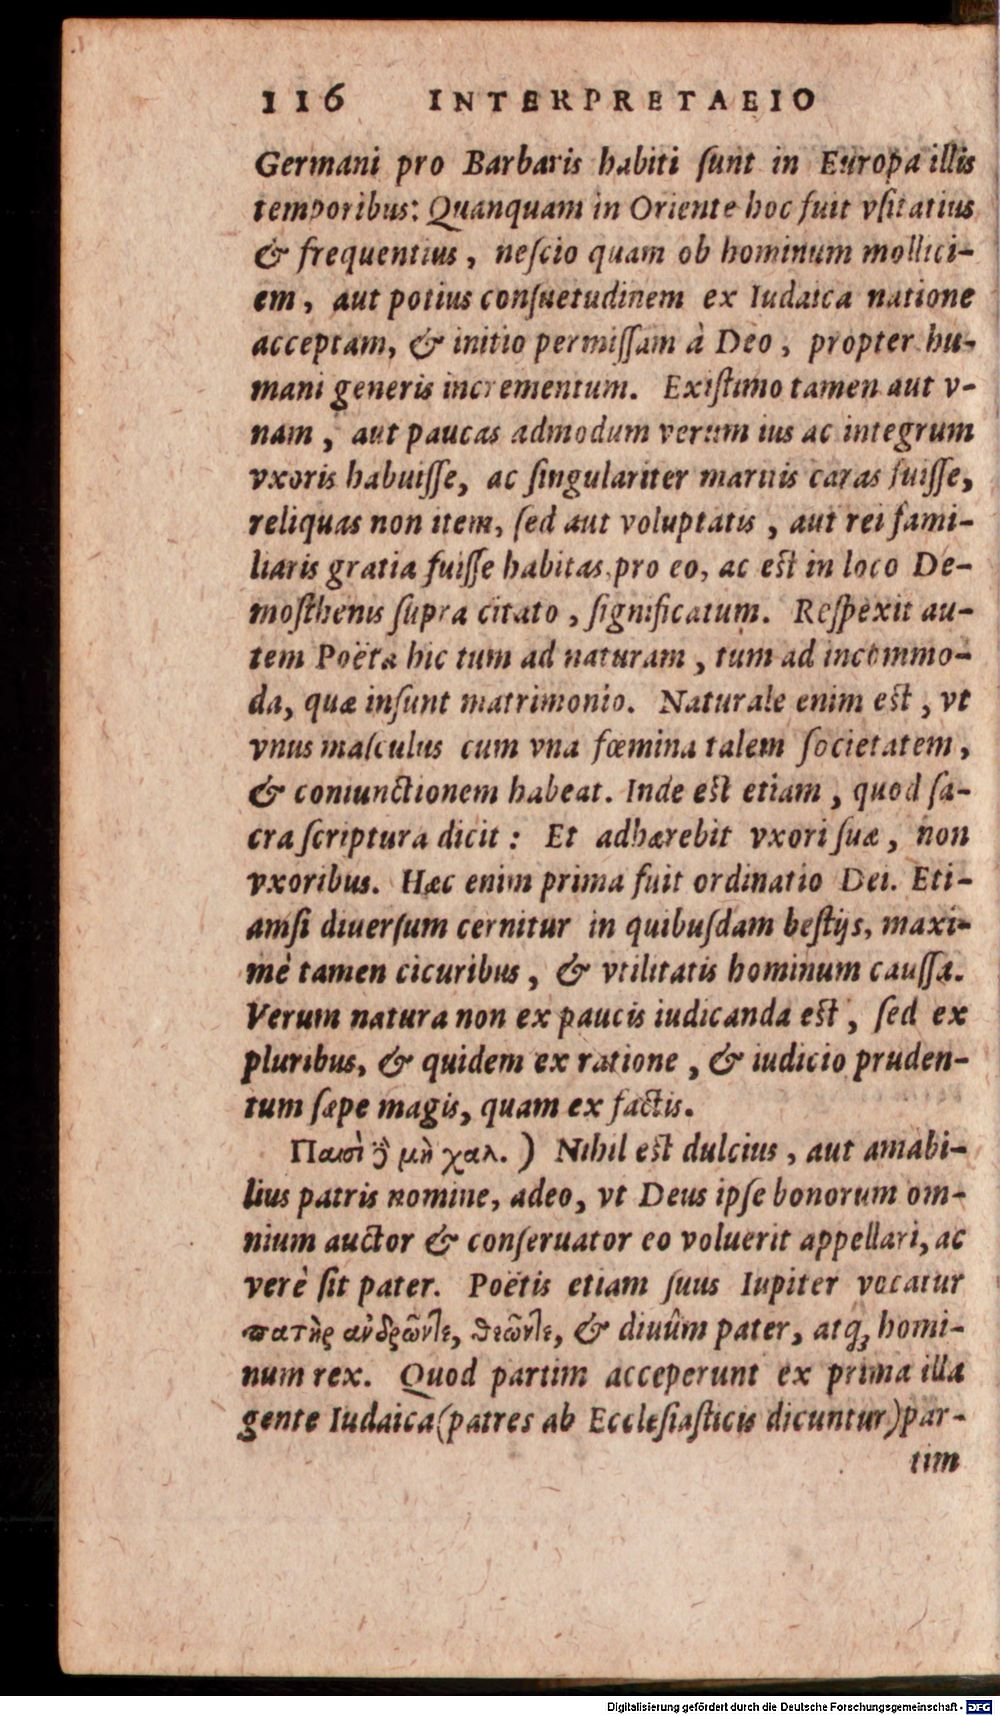 116 INTERPRETAEIO
Germani pro Barbaris habiti ſunt in Europa illis
temporibus: Quanquam in Oriente hoc fuit vſitatius
& frequentius, neſcio quam ob hominum mollici-
em, aut potius conſuetudinem ex Iudaica natione
acceptam, & initio permiſſam à Deo, propter hu-
mani generis incrementum. Exiſtimo tamen aut v-
nam, aut paucas admodum verum ius ac integrum
vxoris habuiſſe, ac ſingulariter maritis caras fuiſſe,
reliquas non item, ſed aut voluptatis, aut rei fami-
liaris gratia fuiſſe habitas pro eo, ac eſt in loco De-
moſthenis ſupra citato, ſignificatum. Reſpexit au-
tem Poëta hic tum ad naturam, tum ad incommo-
da, quæ inſunt matrimonio. Naturale enim eſt, vt
vnus maſculus cum vna fœmina talem ſocietatem,
& coniunctionem habeat. Inde eſt etiam, quod ſa-
cra ſcriptura dicit: Et adhærebit vxori ſuæ, non
vxoribus. Hæc enim prima fuit ordinatio Dei. Eti-
amſi diuerſum cernitur in quibuſdam beſtijs, maxi-
mè tamen cicuribus, & vtilitatis hominum cauſſa.
Verum natura non ex paucis iudicanda eſt, ſed ex
pluribus, & quidem ex ratione, & iudicio pruden-
tum ſæpe magis, quam ex factis.
Παισὶ ȣ̃ μὴ χαλ.) Nihil eſt dulcius, aut amabi-
lius patris nomine, adeo, vt Deus ipſe bonorum om-
nium auctor & conſeruator eo voluerit appellari, ac
verè ſit pater. Poëtis etiam ſuus Iupiter vocatur
πατὴρ ἀνδρῶντε, θεῶντε, & diuûm pater, atq; homi-
num rex. Quod partim acceperunt ex prima illa
gente Iudaica (patres ab Eccleſiaſticis dicuntur) par-
tim
Digitalisierung gefördert durch die Deutsche Forschungsgemeinschaft - DFG